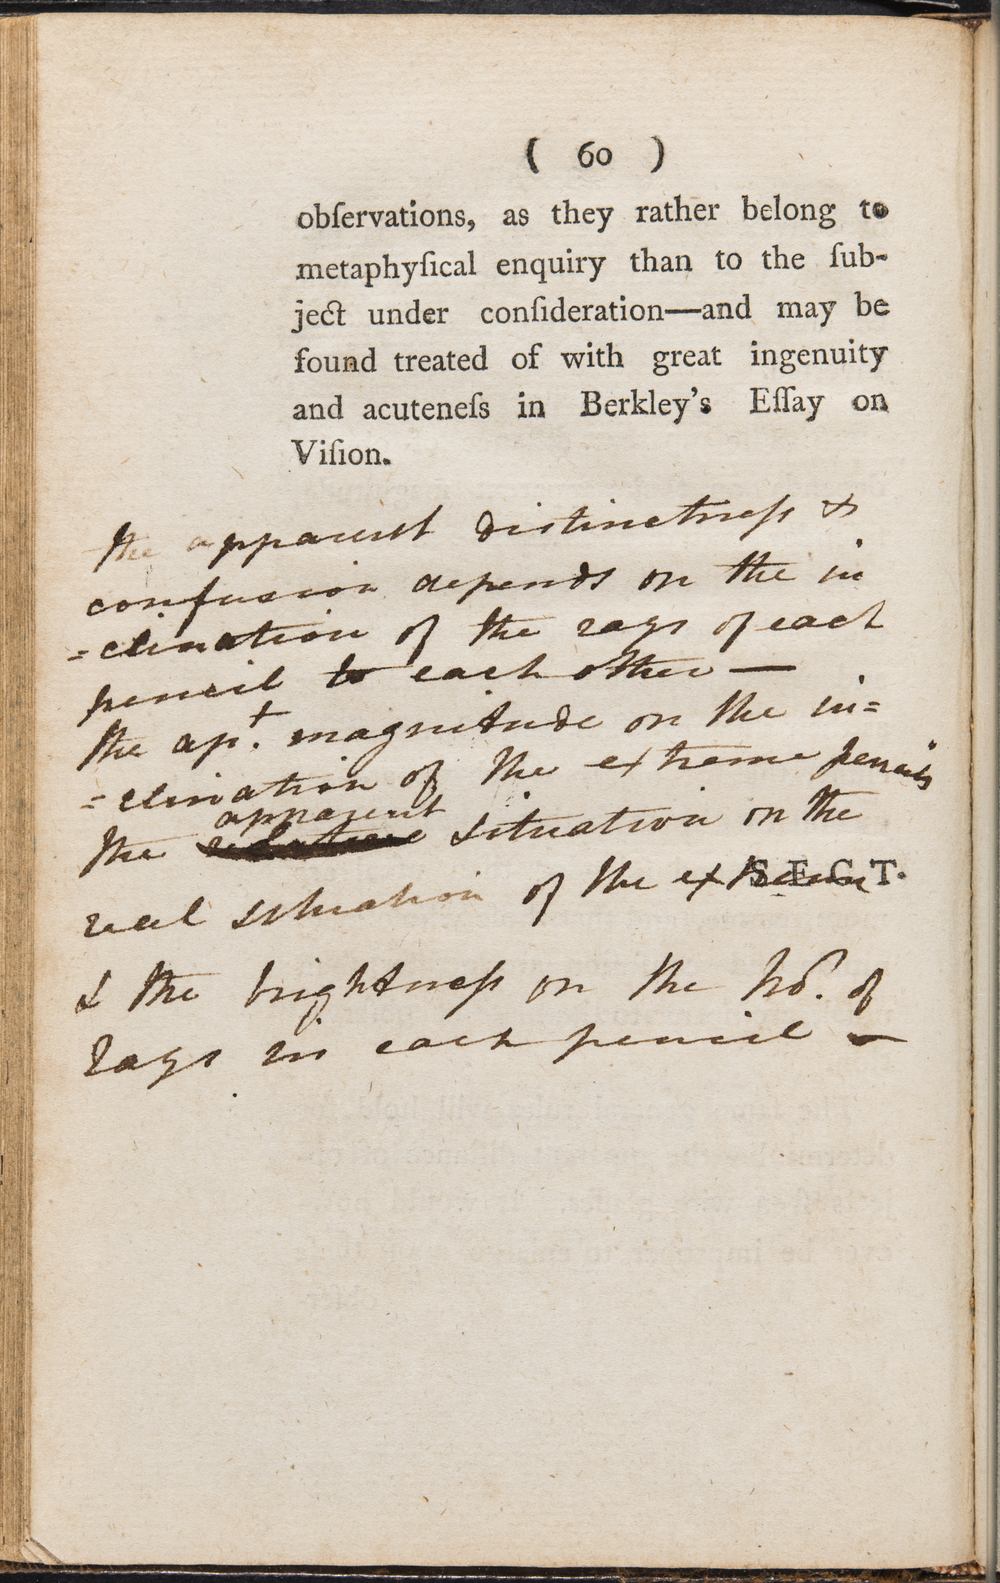 ( 60 )
obſervations, as they rather belong to
metaphyſical enquiry than to the ſub-
ject under conſideration—and may be
found treated of with great ingenuity
and acuteneſs in Berkley's Eſſay on
Viſion.
the apparent distinctneſs &
confusion depends on the in
=clination of the rays of each
pencil to each other —
the apt. magnitude on the in=
=clination of the extreme pencils
apparent
the situation on the
real situation of the extreme
SECT.
& the brightneſs on the No. of
Rays in each pencil —